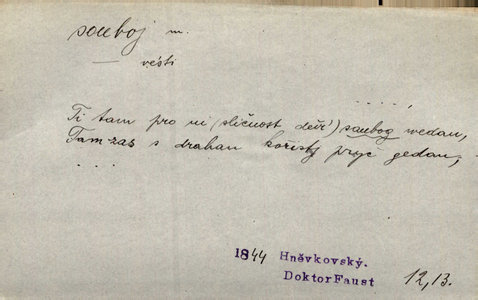 souboj m.
— vésti
. . . . . ;
Ti tam pro ni (sličnost děvč) saubog wedau,
Tam zas s drahau kořistj pryč gedau;
. . . .
1844 Hněvkovský.
Doktor Faust 12,13.